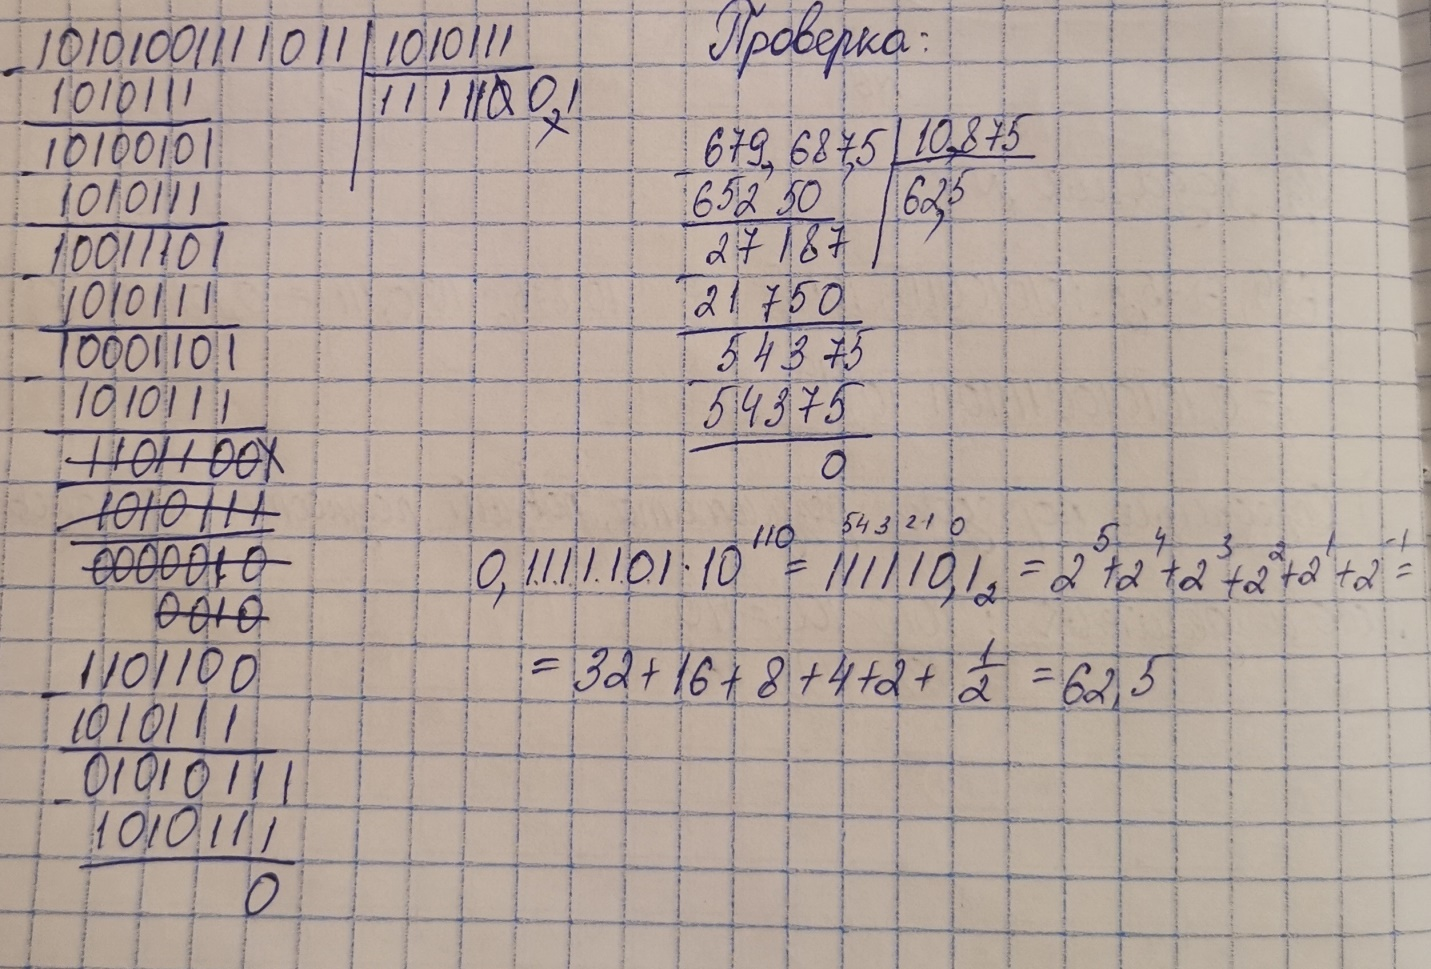 1010100111011 | 1010111
1010111 | 111110 0,1
10100101
1010111
10011101
1010111
10001101
1010111
1101100
1010111
0000010
0010
1101100
1010111
01010111
1010111
0
Проверка:
679,6875 | 10,875
65250 | 62,5
27187
21750
54375
54375
0
543210
0,1111101·10^110 = 111110,1₂ = 2^5+2^4+2^3+2^2+2^1+2^-1=
= 32+16+8+4+2+1/2 = 62,5